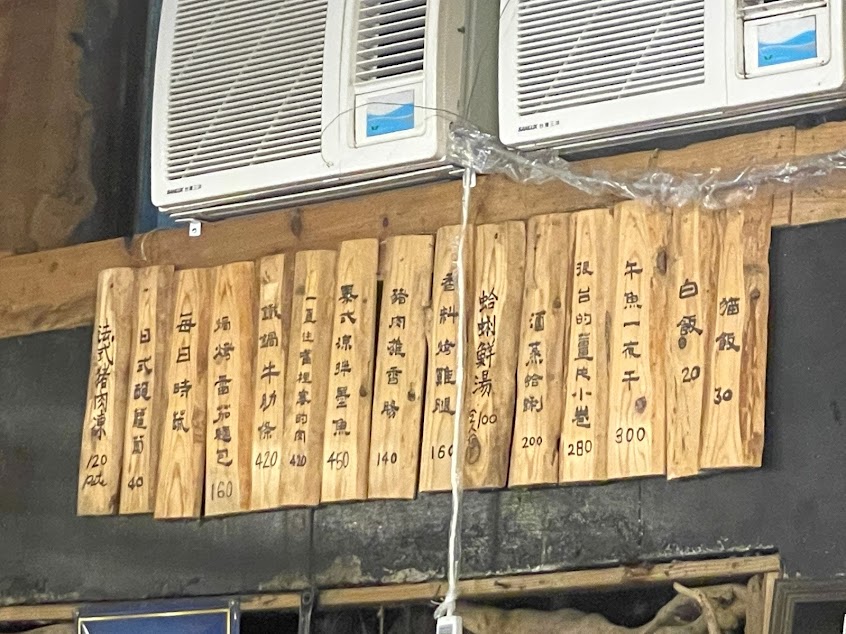 SANLUX 台灣三洋
SANLUX 台灣三洋
貓飯 30
白飯 20
午魚一夜干 300
很台的薑 小卷 280
酒蒸蛤蜊 200
蛤蜊鮮湯 100
香料烤雞腿 160
豬肉 香腸 140
泰式涼拌墨魚 450
一直住 的肉 420
鐵鍋牛肋條 420
焗烤番茄麵包 160
每日時蔬
日式醃蘿蔔 40
法式豬肉凍 120